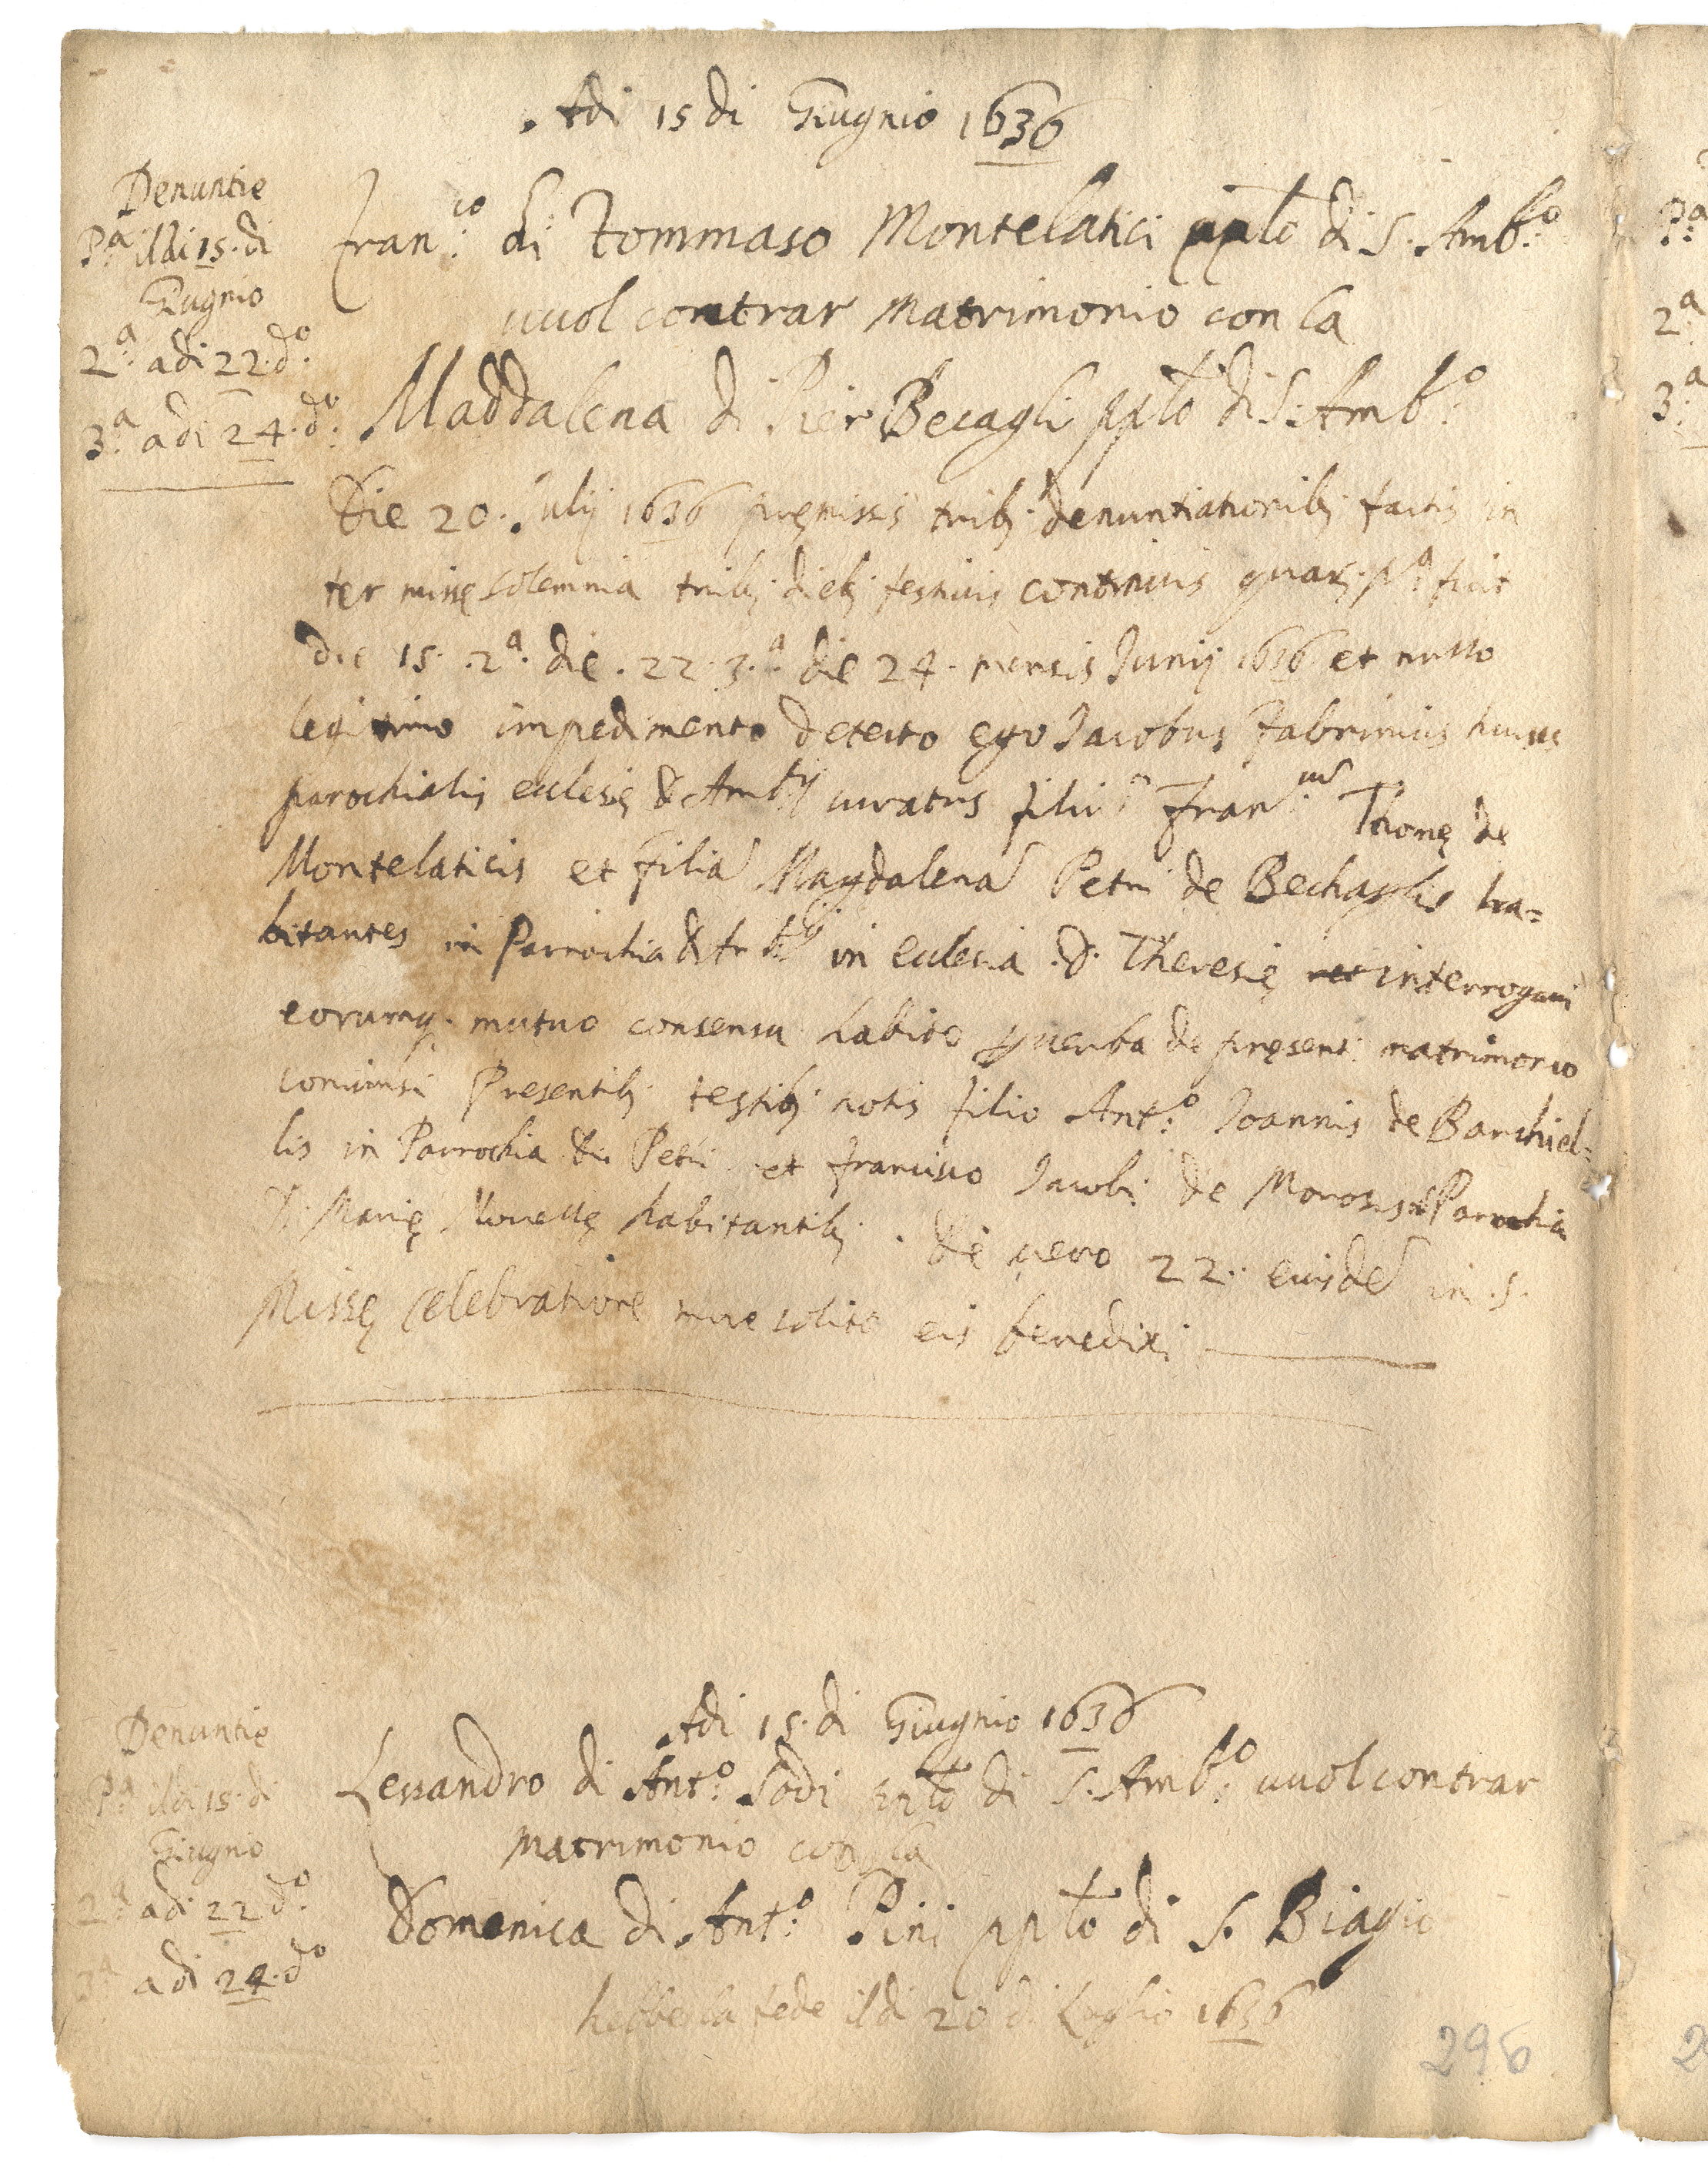 Adi 15 di Giugnio 1636
Denuntie
P.ª il di 15. di
Giugnio
2.ª adi 22 d.º
3.ª adi 24. d.º
Fran.co di Tommaso Montelatici pplo di S. Amb.º
vuol contrar matrimonio con la
Maddalena di Pier Becagli pplo di S. Amb.º
Die 20. Julij 1636 premissis tribq. denuntiationibq factis in
ter missę solemnia tribq diebq festiuis continuis quarq. pª fuit
die 15. 2ª. die. 22. 3.ª die 24. mensis Junij 1636 et nullo
legitimo impedimento detecto ego Jacobus Fabrinius huius
parochialis ecclesię S. Ambij curatus Fran.um Thomę de
Montelaticis et filiā Magdalenā Petri de Bechaglis ha=
bitantes in Parrochia S. Ambij in ecclesia S. Theresię interrogaui
eorumq. mutuo consensu habito p uerba de pręsenti matrimonio
coniunxi Presentibq testibq notis filio Ant.º Joannis de Barchiel=
lis in Parrochia S. Petri et Francisco Jacobi de Morosis Parochia
S. Marię Nouellę habitantibq. Die uero 22. eiusdē in S.
Missę celebratione more solito eis benedixi
Adi 15. di Giugnio 1636
Denuntie
P.ª il di 15. di
Giugnio
2.ª adi 22 d.º
3.ª adi 24. d.º
Lessandro di Ant.º Sodi pplo di S. Amb.º vuol contrar
matrimonio con la
Domenica di Ant.º Pini pplo di S. Biagio
hebbe la fede il di 20 di Luglio 1636
296